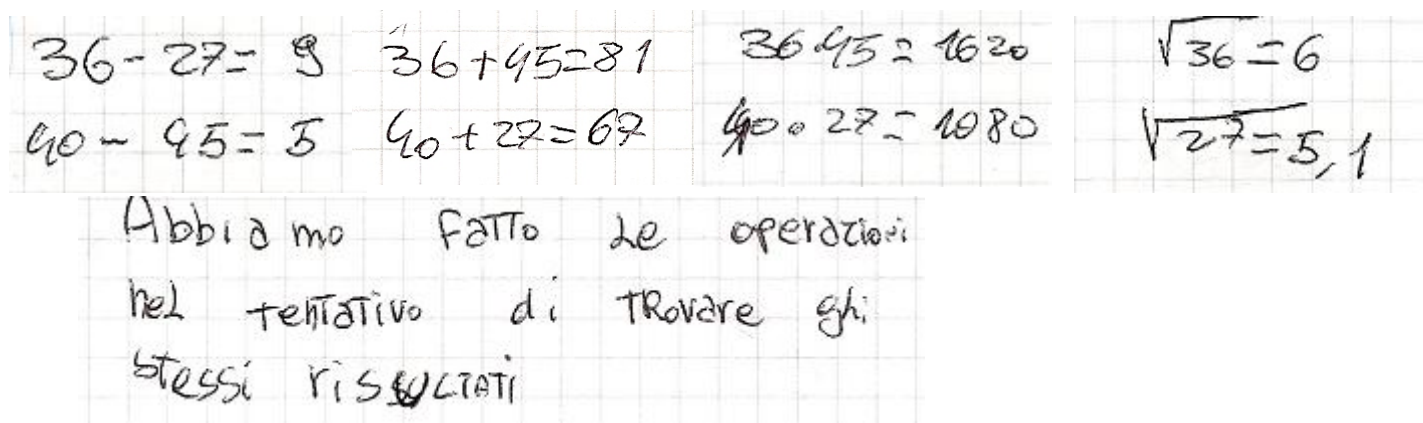 36 - 27 = 9
40 - 45 = 5
36 + 45 = 81
40 + 27 = 67
36 · 45 = 1620
40 · 27 = 1080
√36 = 6
√27 = 5,1
Abbiamo fatto le operazioni
nel tentativo di trovare ghi
stessi rissultati